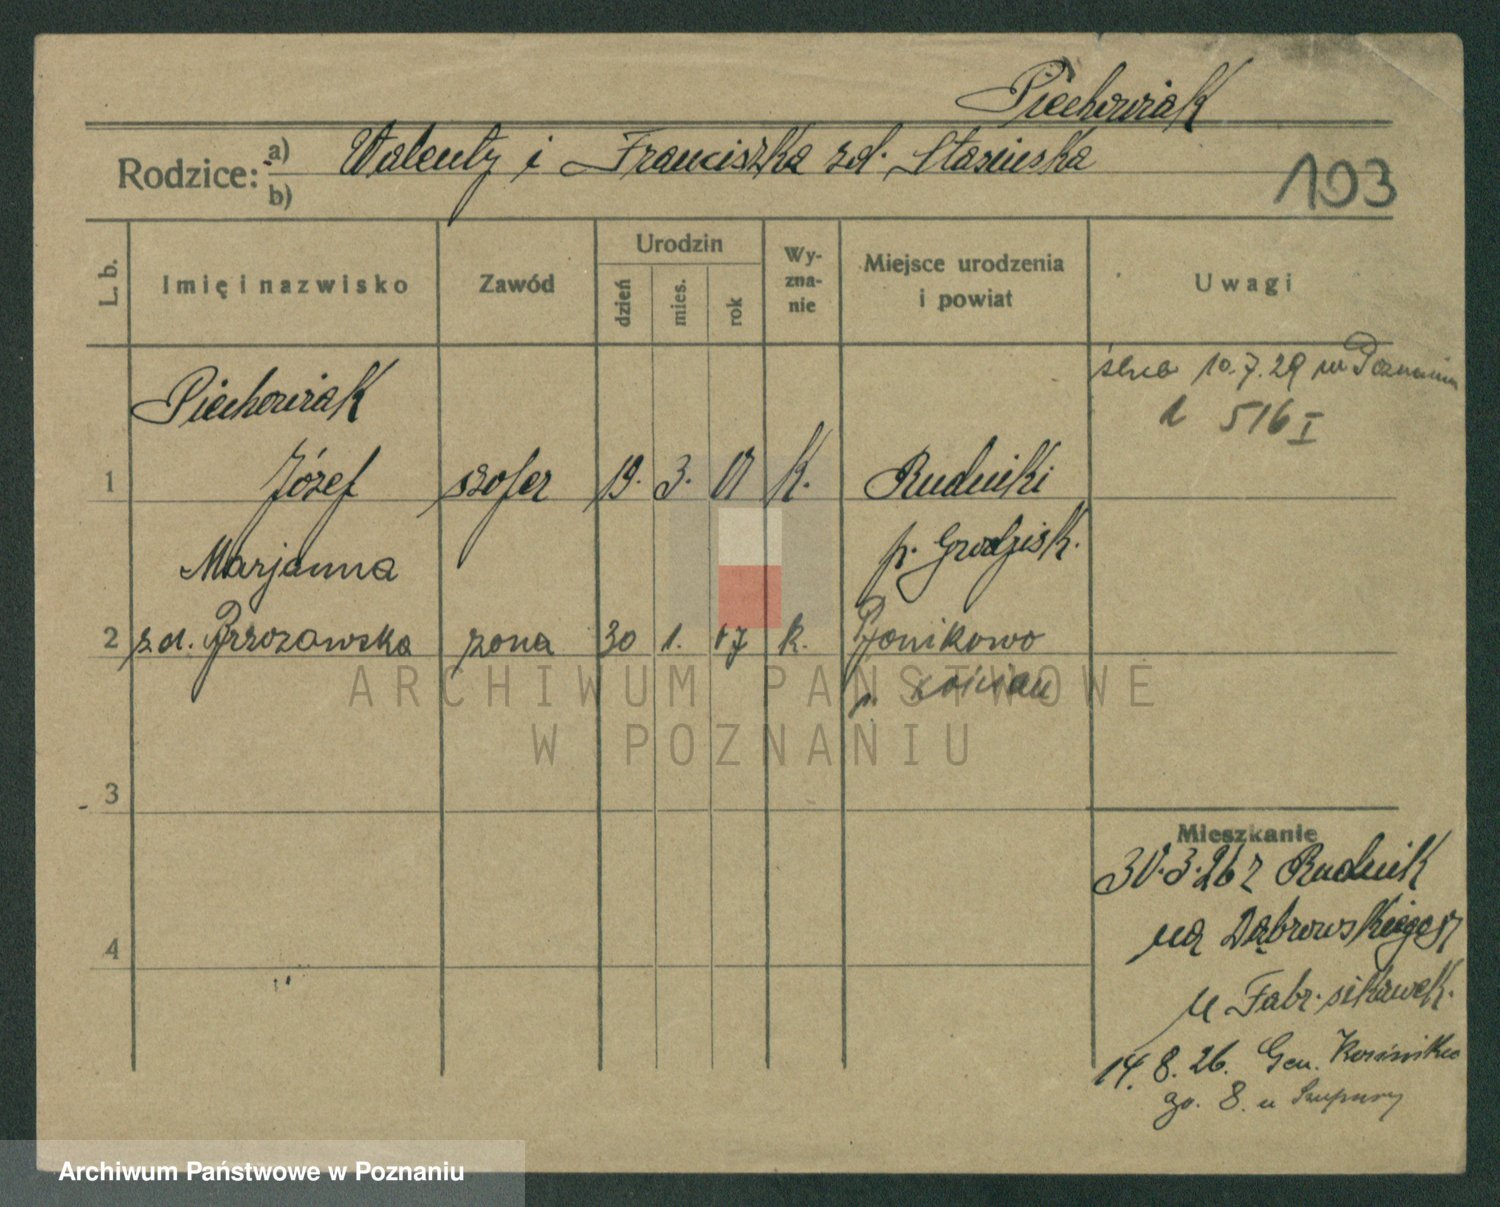 Piechowiak
Rodzice: a) Walenty i Franciszka zd. Stasińska
b)
193
L. b.
Imię i nazwisko
Zawód
Urodzin
dzień
mies.
rok
Wy-
zna-
nie
Miejsce urodzenia
i powiat
Uwagi
Piechowiak
ślub 10.7.29 w Poznaniu
516 I
1 Józef szofer 19. 3. 01 K. Rudniki
Marjanna p. Grodzisk.
2 zd. Brzozowska żona 30 1. 07 k. Ponikowo
p. Kościan
ARCHIWUM PAŃSTWOWE
W POZNANIU
3
Mieszkanie
30.3.26 z Rudnik
na Dąbrowskiego
4
u Fabr. sikawek.
14. 8. 26. Gen. Kosińskie
go. 8. u
Archiwum Państwowe w Poznaniu